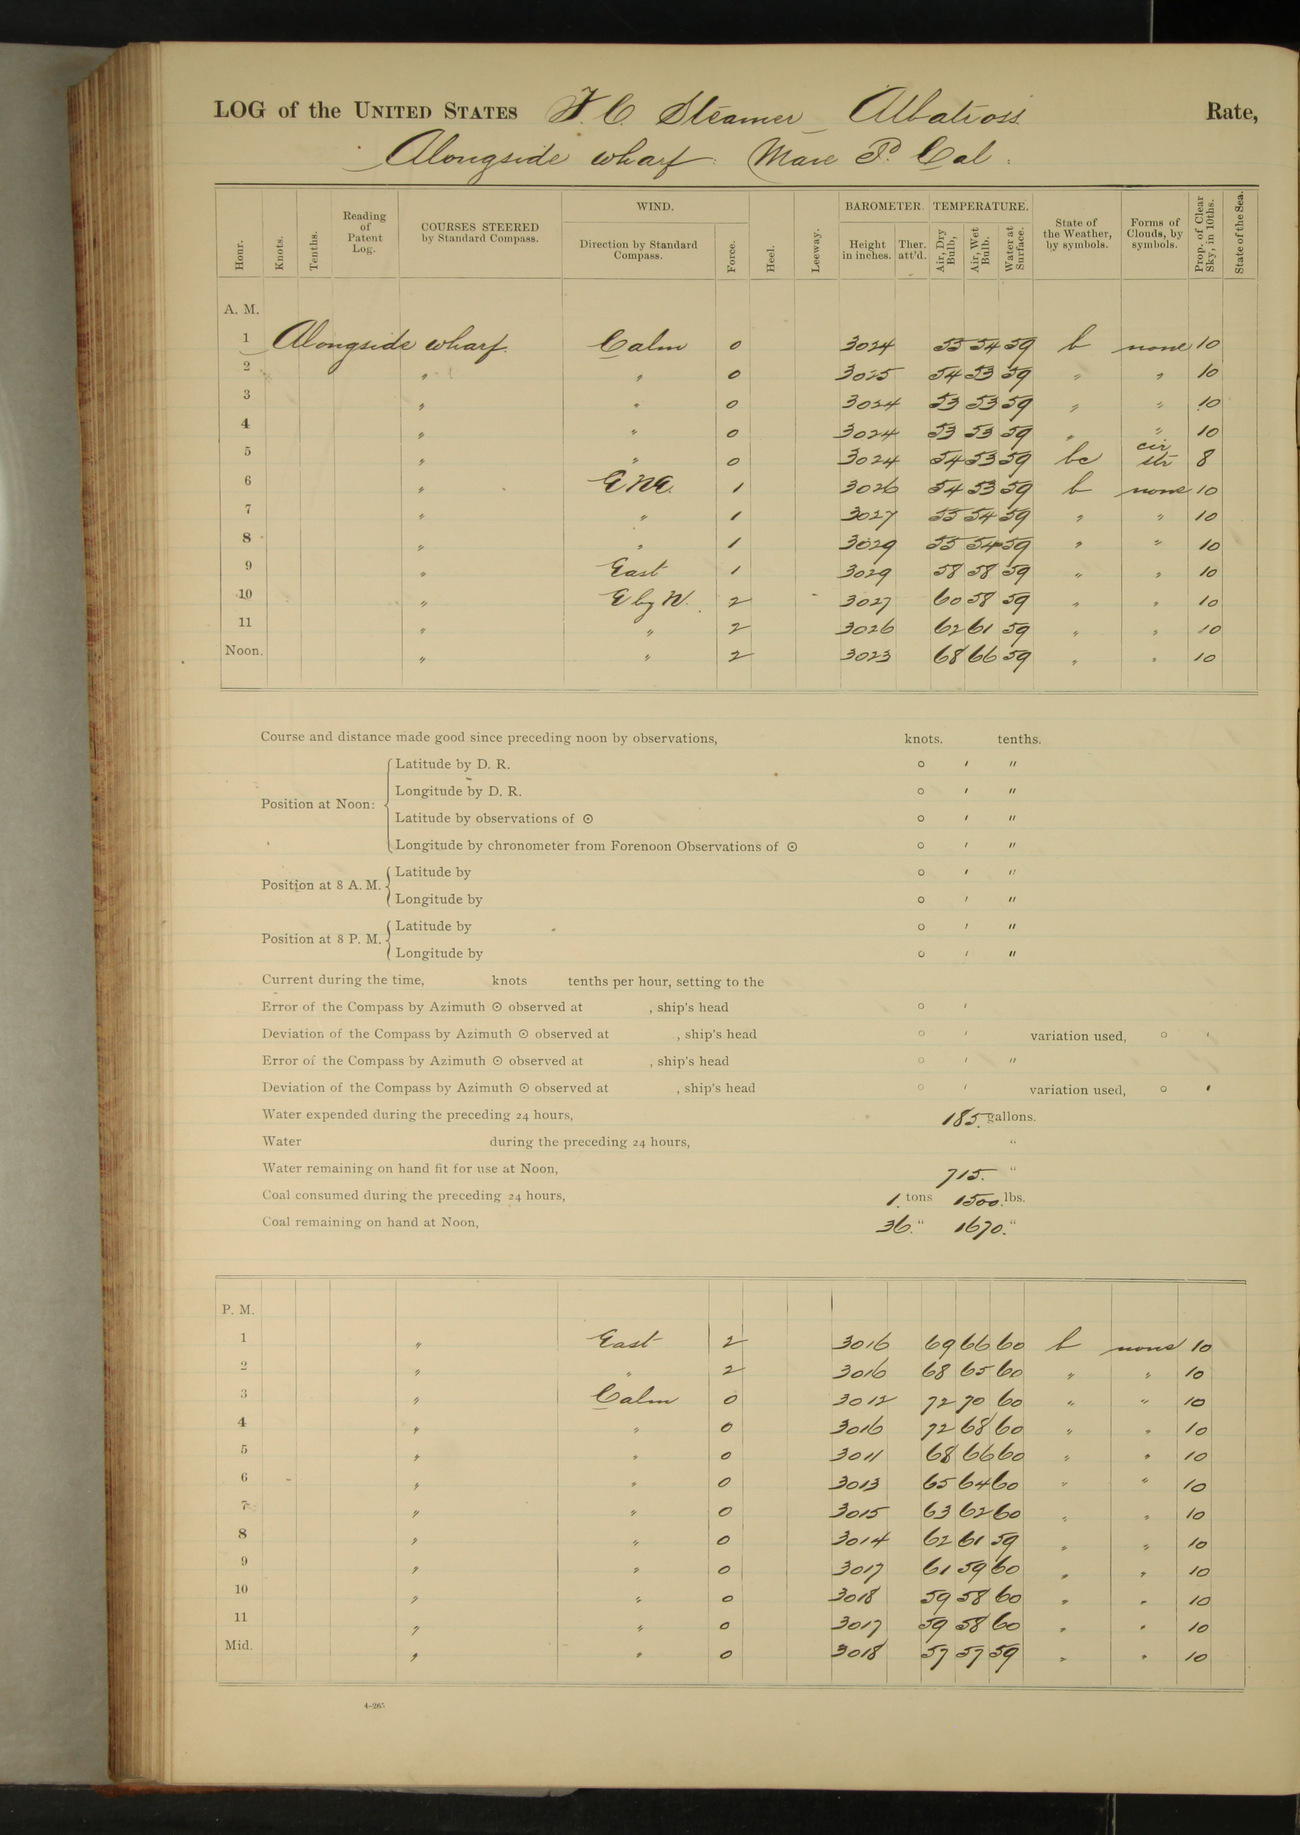 LOG of the UNITED STATES F. C. Steamer Albatross Rate,
Alongside wharf. Mare Id. Cal.
Hour. Knots. Tenths. Reading of Patent Log. COURSES STEERED by Standard Compass. WIND. Direction by Standard Compass. Force. Heel. Leeway. BAROMETER. Height in inches. Ther. att'd. TEMPERATURE. Air, Dry Bulb, Air, Wet Bulb. Water at Surface. State of the Weather, by symbols. Forms of Clouds, by symbols. Prop. of Clear Sky, in 10ths. State of the Sea.
A. M.
1 Alongside wharf. Calm 0 3024 55 54 59 b none 10
2 " " 0 3025 54 53 59 " " 10
3 " " 0 3024 53 53 59 " " 10
4 " " 0 3024 53 53 59 " " 10
5 " " 0 3024 54 53 59 bc cir str 8
6 " ENE. 1 3026 54 53 59 b none 10
7 " " 1 3027 55 54 59 " " 10
8 " " 1 3029 55 54 59 " " 10
9 " East 1 3029 58 58 59 " " 10
10 " E by N. 2 3027 60 58 59 " " 10
11 " " 2 3026 62 61 59 " " 10
Noon. " " 2 3023 68 66 59 " " 10
Course and distance made good since preceding noon by observations, knots. tenths.
Position at Noon:
Latitude by D. R. ° ′ ″
Longitude by D. R. ° ′ ″
Latitude by observations of ⊙ ° ′ ″
Longitude by chronometer from Forenoon Observations of ⊙ ° ′ ″
Position at 8 A. M.
Latitude by ° ′ ″
Longitude by ° ′ ″
Position at 8 P. M.
Latitude by ° ′ ″
Longitude by ° ′ ″
Current during the time, knots tenths per hour, setting to the
Error of the Compass by Azimuth ⊙ observed at , ship's head ° ′
Deviation of the Compass by Azimuth ⊙ observed at , ship's head ° ′ variation used, ° ′
Error of the Compass by Azimuth ⊙ observed at , ship's head ° ′ ″
Deviation of the Compass by Azimuth ⊙ observed at , ship's head ° ′ variation used, ° ′
Water expended during the preceding 24 hours, 185. gallons.
Water during the preceding 24 hours, "
Water remaining on hand fit for use at Noon, 715. "
Coal consumed during the preceding 24 hours, 1. tons 1500. lbs.
Coal remaining on hand at Noon, 36. " 1670. "
P. M.
1 " East 2 3016 69 66 60 b none 10
2 " " 2 3016 68 65 60 " " 10
3 " Calm 0 3012 72 70 60 " " 10
4 " " 0 3016 72 68 60 " " 10
5 " " 0 3011 68 66 60 " " 10
6 " " 0 3013 65 64 60 " " 10
7 " " 0 3015 63 62 60 " " 10
8 " " 0 3014 62 61 59 " " 10
9 " " 0 3017 61 59 60 " " 10
10 " " 0 3018 59 58 60 " " 10
11 " " 0 3017 59 58 60 " " 10
Mid. " " 0 3018 57 57 59 " " 10
4-265